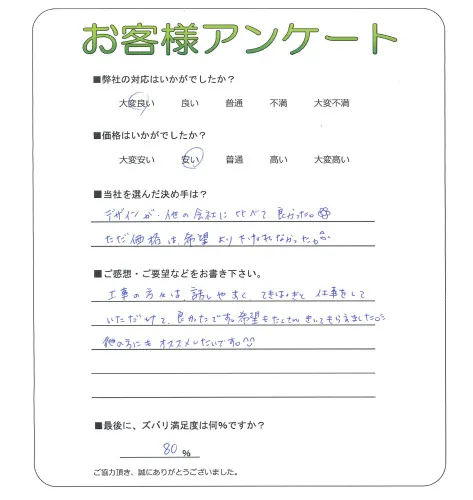 お客様アンケート
■弊社の対応はいかがでしたか？
大変良い 良い 普通 不満 大変不満
■価格はいかがでしたか？
大変安い 安い 普通 高い 大変高い
■当社を選んだ決め手は？
デザインが、他の会社に比べて良かった。
ただ価格は、希望より下がれなかった。
■ご感想・ご要望などをお書き下さい。
工事の方々は、話しやすく、てきぱきと仕事をして
いただけて、良かったです。希望もたくさんきいてもらえました。
他の方にもオススメしたいです。
■最後に、ズバリ満足度は何％ですか？
80 %
ご協力頂き、誠にありがとうございました。